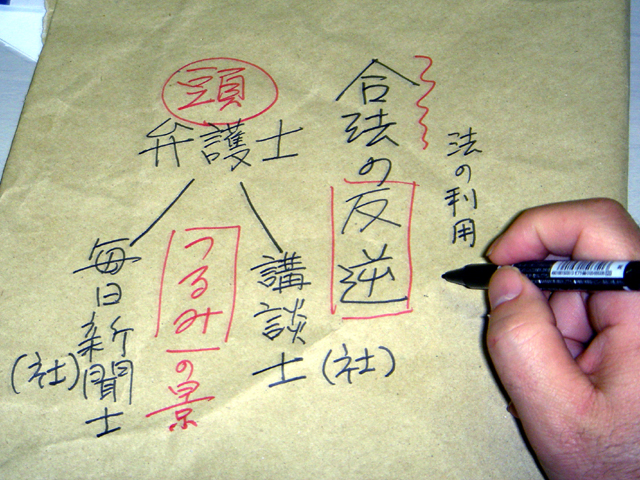 法の利用
合法の反逆
頭
弁護士
講談士
(社)
つるみの景
毎日新聞士
(社)